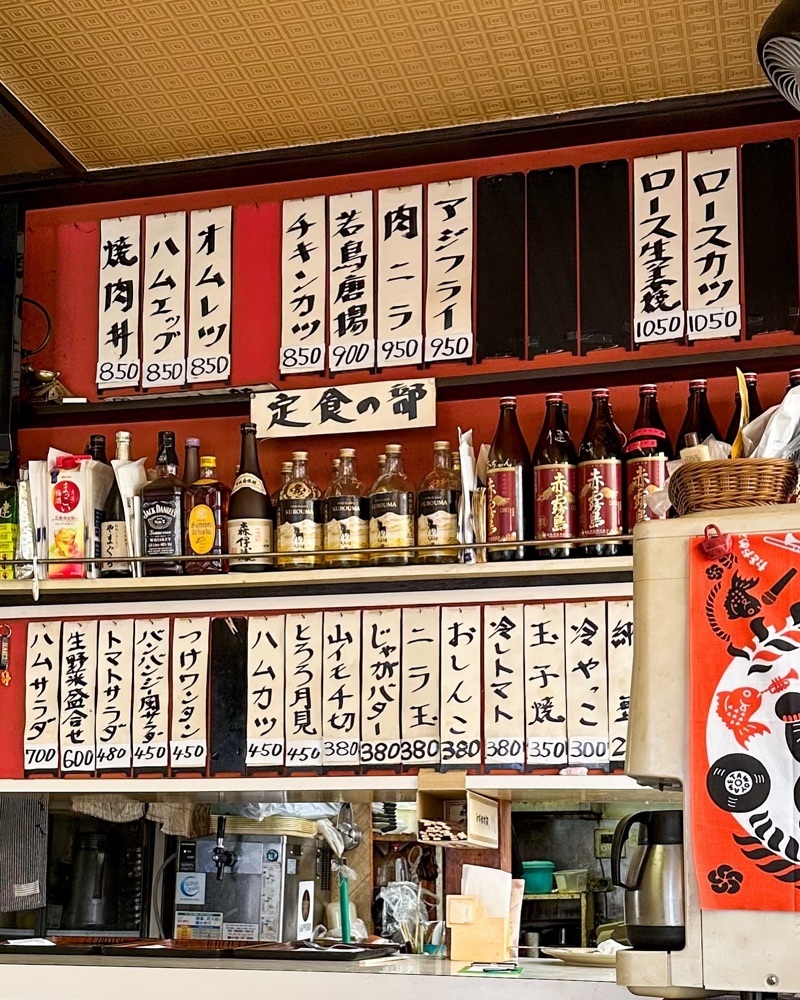 焼肉丼 850
ハムエッグ 850
オムレツ 850
チキンカツ 850
若鳥唐揚 900
肉ニラ 950
アジフライ 950
ロース生姜焼 1050
ロースカツ 1050
定食の部
JACK DANIEL'S
KUROUMA
KUROUMA
KUROUMA
KUROUMA
赤霧島
赤霧島
赤霧島
赤霧島
ハムサラダ 700
生野菜盛合せ 600
トマトサラダ 480
バンバンジー風サラダ 450
つけワンタン 450
ハムカツ 450
とろろ月見 450
山イモ千切 380
じゃがバター 380
ニラ玉 380
おしんこ 380
冷しトマト 380
玉子焼 350
冷やっこ 300